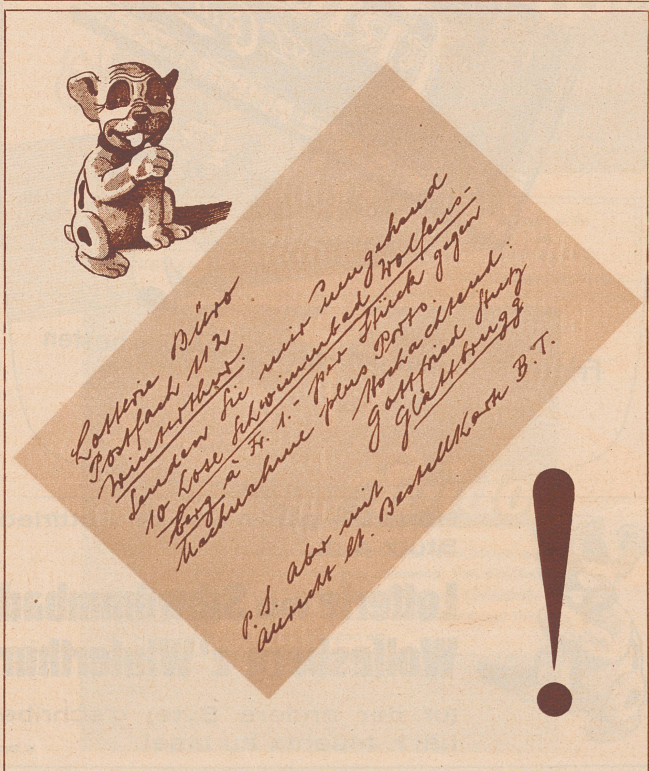 Lotterie Büro
Postfach 112
Winterthur.
Senden Sie mir umgehend
10 Lose Schwimmbad Wolfens-
berg à Fr. 1.- per Stück gegen
Nachnahme plus Porto.
Hochachtend:
Gottfried Stutz
Glattbrugg
P.S. Aber mit
Anrecht lt. Bestellkarte B.T.